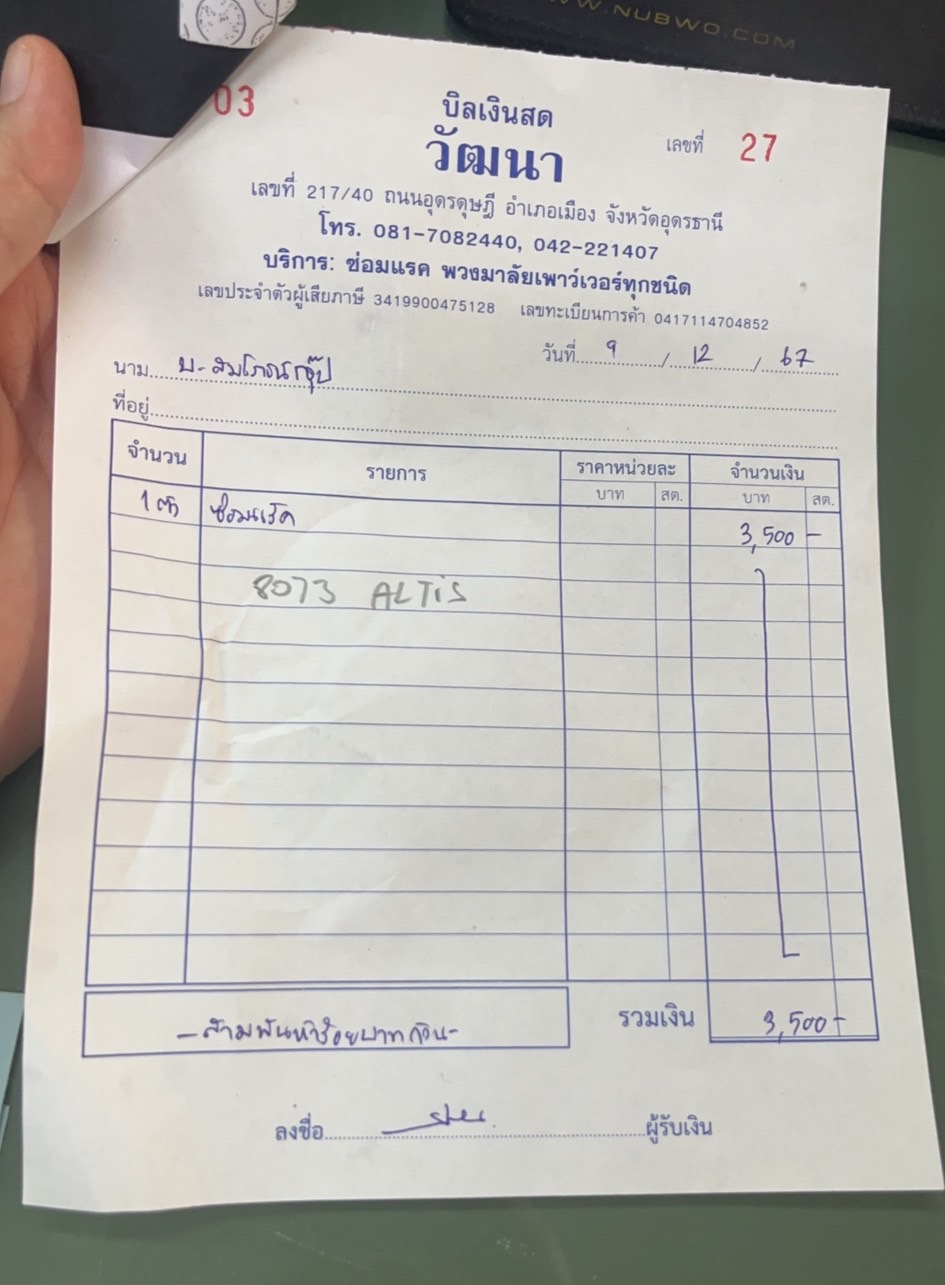 WWW.NUBWO.COM
03
บิลเงินสด
เลขที่ 27
วัฒนา
เลขที่ 217/40 ถนนอุดรดุษฎี อำเภอเมือง จังหวัดอุดรธานี
โทร. 081-7082440, 042-221407
บริการ: ซ่อมแรค พวงมาลัยเพาว์เวอร์ทุกชนิด
เลขประจำตัวผู้เสียภาษี 3419900475128 เลขทะเบียนการค้า 0417114704852
วันที่ 9 / 12 / 67
นาม บ-สมโภชน์กรุ๊ป
ที่อยู่
จำนวน รายการ ราคาหน่วยละ จำนวนเงิน
บาท สต. บาท สต.
1 ตัว ซ่อมแร็ค 3,500 -
8073 ALTiS
-สามพันห้าร้อยบาทถ้วน- รวมเงิน 3,500-
ลงชื่อ ผู้รับเงิน